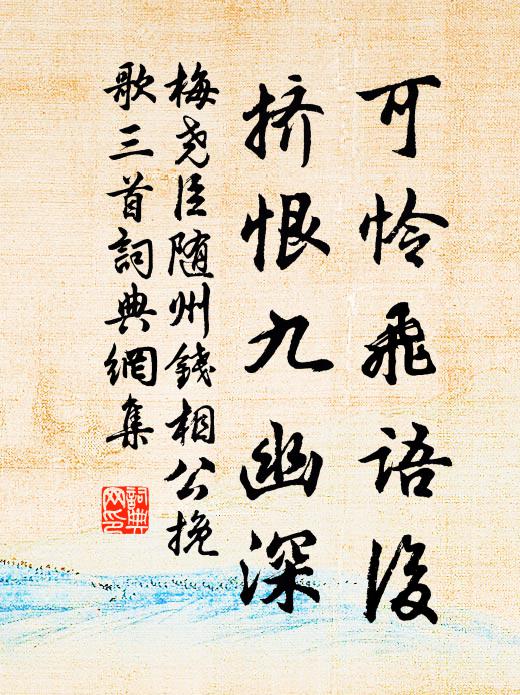 可怜飛語後
挤恨九幽深
梅尧臣随州錢相公挽
歌三首詞典網集
詞典
网印